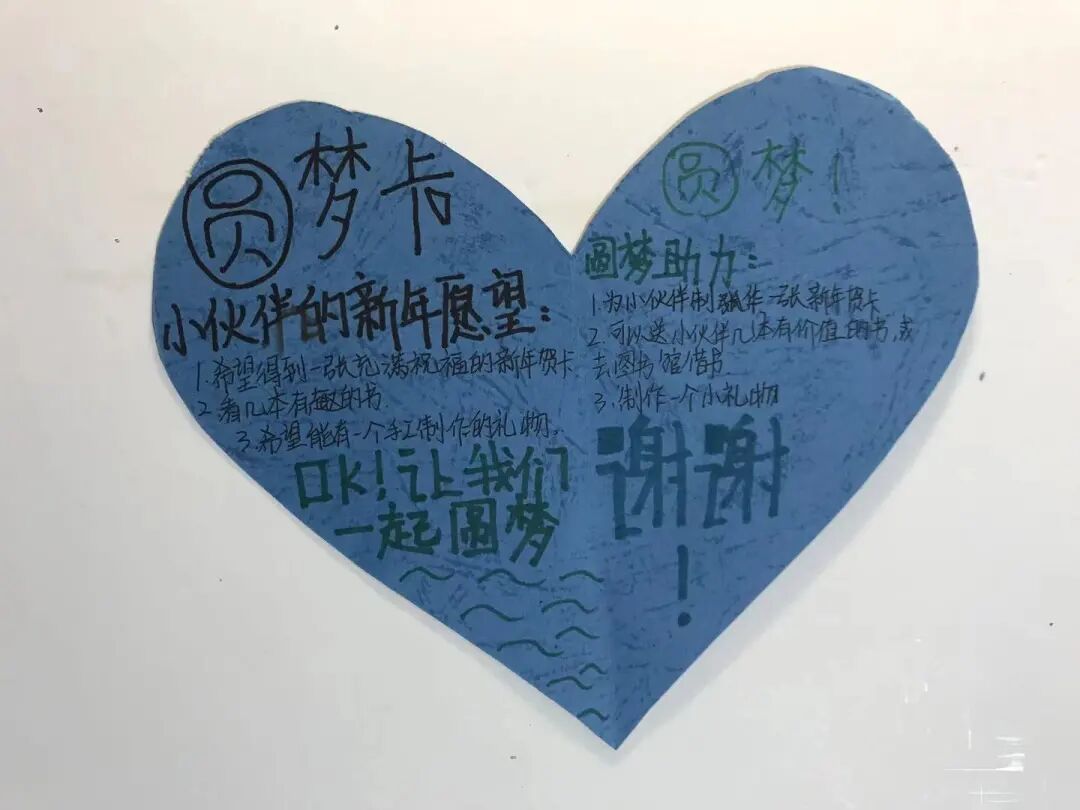 圆梦卡
小伙伴的新年愿望：
1.希望得到一张充满祝福的新年贺卡
2.看几本有趣的书.
3.希望能有一个手工制作的礼物。
OK！让我们
一起圆梦
圆梦！
圆梦助力：
1.为小伙伴制作一张新年贺卡
2.可以送小伙伴几本有价值的书,或
去图书馆借书.
3.制作一个小礼物
谢谢
！